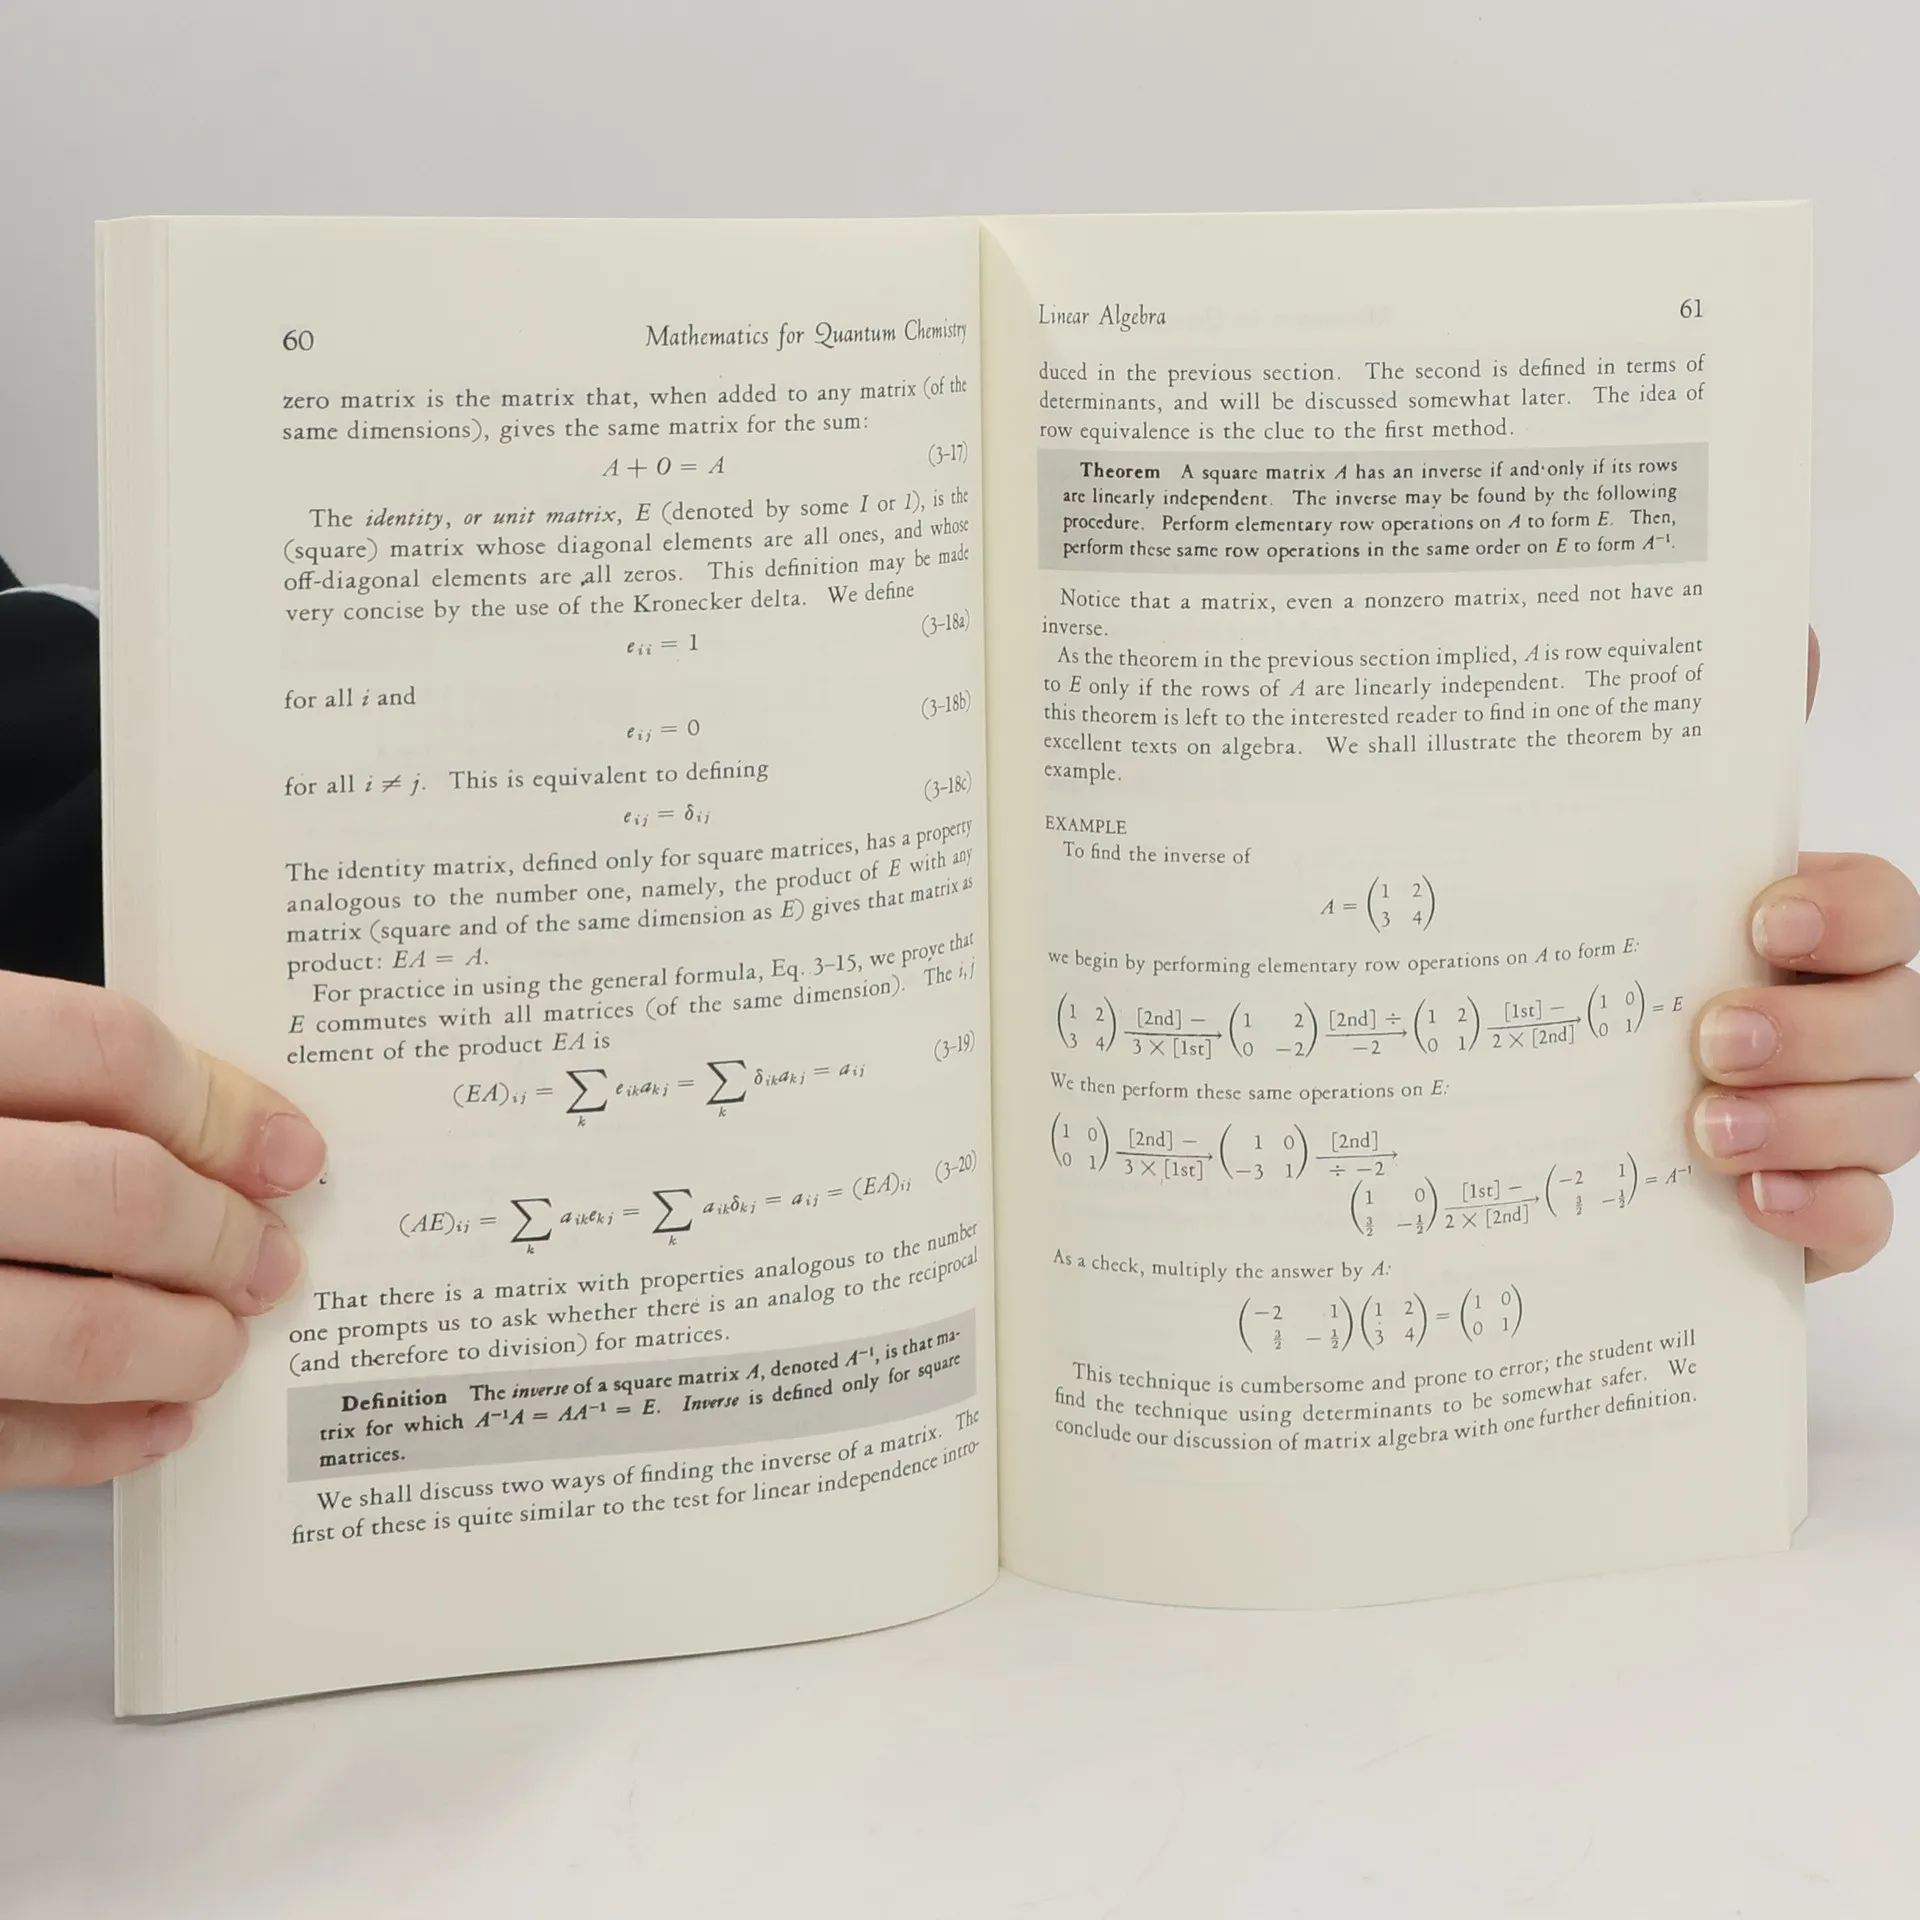 60 Mathematics for Quantum Chemistry
zero matrix is the matrix that, when added to any matrix (of the
same dimensions), gives the same matrix for the sum:
A + 0 = A (3–17)
The identity, or unit matrix, E (denoted by some I or 1), is the
(square) matrix whose diagonal elements are all ones, and whose
off-diagonal elements are all zeros. This definition may be made
very concise by the use of the Kronecker delta. We define
e_{ii} = 1 (3–18a)
for all i and
e_{ij} = 0 (3–18b)
for all i ≠ j. This is equivalent to defining
e_{ij} = δ_{ij} (3–18c)
The identity matrix, defined only for square matrices, has a property
analogous to the number one, namely, the product of E with any
matrix (square and of the same dimension as E) gives that matrix as
product: EA = A.
For practice in using the general formula, Eq. 3–15, we prove that
E commutes with all matrices (of the same dimension). The i, j
element of the product EA is
(EA)_{ij} = ∑_k e_{ik}a_{kj} = ∑_k δ_{ik}a_{kj} = a_{ij} (3–19)
(AE)_{ij} = ∑_k a_{ik}e_{kj} = ∑_k a_{ik}δ_{kj} = a_{ij} = (EA)_{ij} (3–20)
That there is a matrix with properties analogous to the number
one prompts us to ask whether there is an analog to the reciprocal
(and therefore to division) for matrices.
Definition The inverse of a square matrix A, denoted A⁻¹, is that ma-
trix for which A⁻¹A = AA⁻¹ = E. Inverse is defined only for square
matrices.
We shall discuss two ways of finding the inverse of a matrix. The
first of these is quite similar to the test for linear independence intro-
Linear Algebra 61
duced in the previous section. The second is defined in terms of
determinants, and will be discussed somewhat later. The idea of
row equivalence is the clue to the first method.
Theorem A square matrix A has an inverse if and only if its rows
are linearly independent. The inverse may be found by the following
procedure. Perform elementary row operations on A to form E. Then,
perform these same row operations in the same order on E to form A⁻¹.
Notice that a matrix, even a nonzero matrix, need not have an
inverse.
As the theorem in the previous section implied, A is row equivalent
to E only if the rows of A are linearly independent. The proof of
this theorem is left to the interested reader to find in one of the many
excellent texts on algebra. We shall illustrate the theorem by an
example.
EXAMPLE
To find the inverse of
A = (1 2
3 4)
we begin by performing elementary row operations on A to form E:
(1 2 [2nd] − (1 2 [2nd] ÷ (1 2) [1st] − (1 0) = E
3 4) 3 × [1st] 0 −2) −2 (0 1) 2 × [2nd] (0 1)
We then perform these same operations on E:
(1 0) [2nd] − (1 0) [2nd]
(0 1) 3 × [1st] (−3 1) ÷ −2
(1 0) [1st] − (−2 1) = A⁻¹
(3/2 −1/2) 2 × [2nd] (3/2 −1/2)
As a check, multiply the answer by A:
(−2 1) (1 2) = (1 0)
(3/2 −1/2) (3 4) (0 1)
This technique is cumbersome and prone to error; the student will
find the technique using determinants to be somewhat safer. We
conclude our discussion of matrix algebra with one further definition.